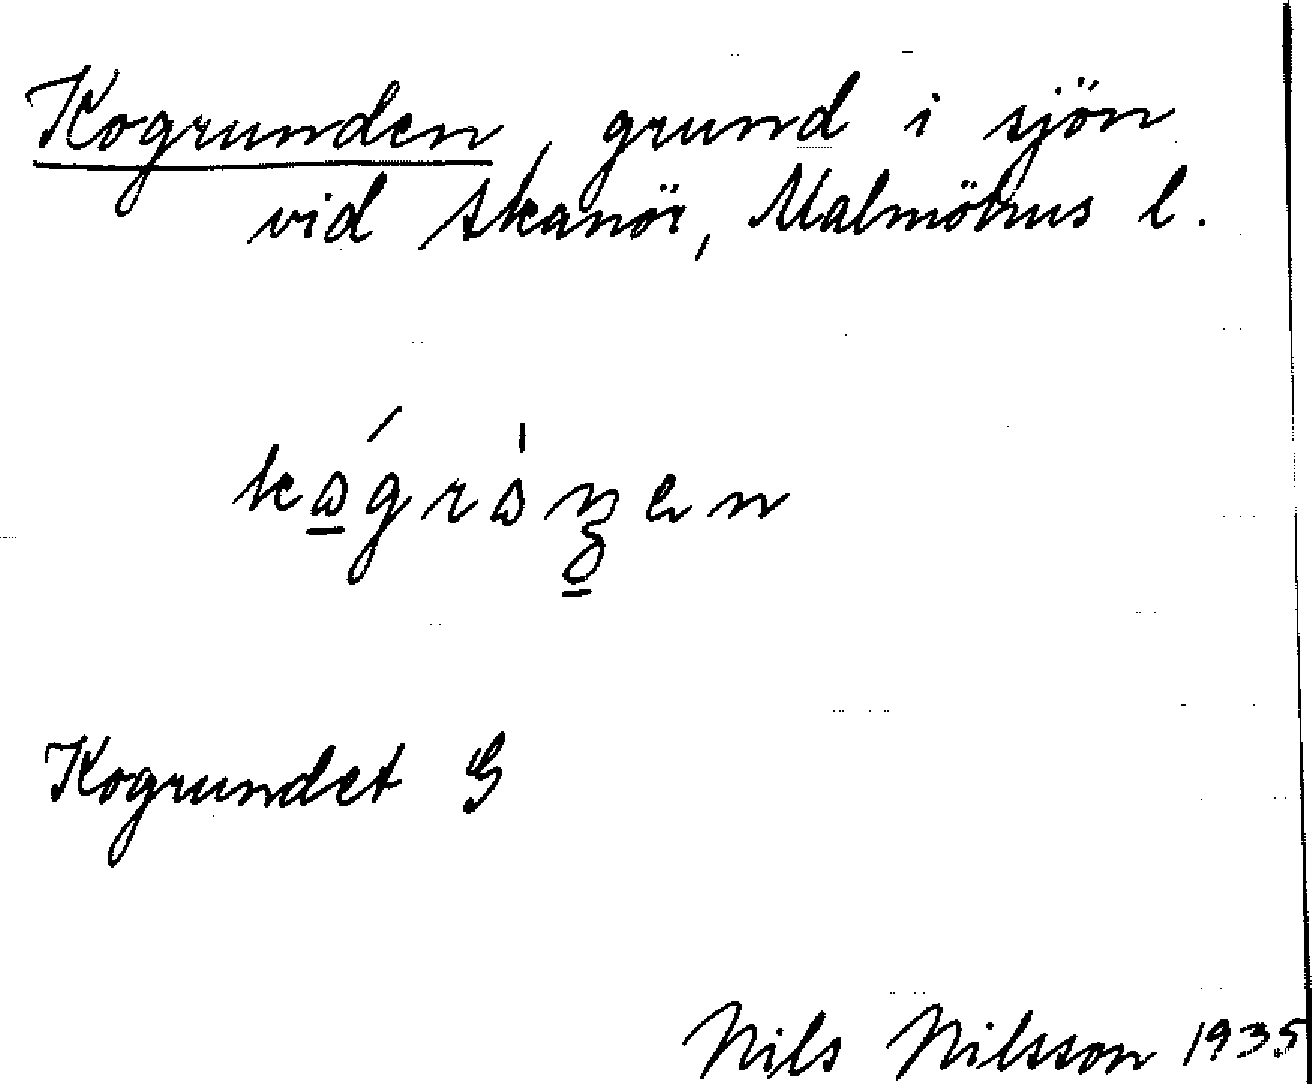 Kogrunden, grund i sjön
vid Skanör, Malmöhus l.
Kogrundet G
Nils Nilsson 1935